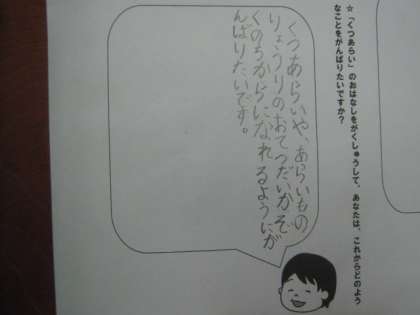 ☆「くつあらい」のおはなしをがくしゅうして、あなたは、これからどのよう
なことをがんばりたいですか？
くつあらいや、あらいもの
りょうりのおてつだいかぞ
くのちからになれるようにが
んばりたいです。